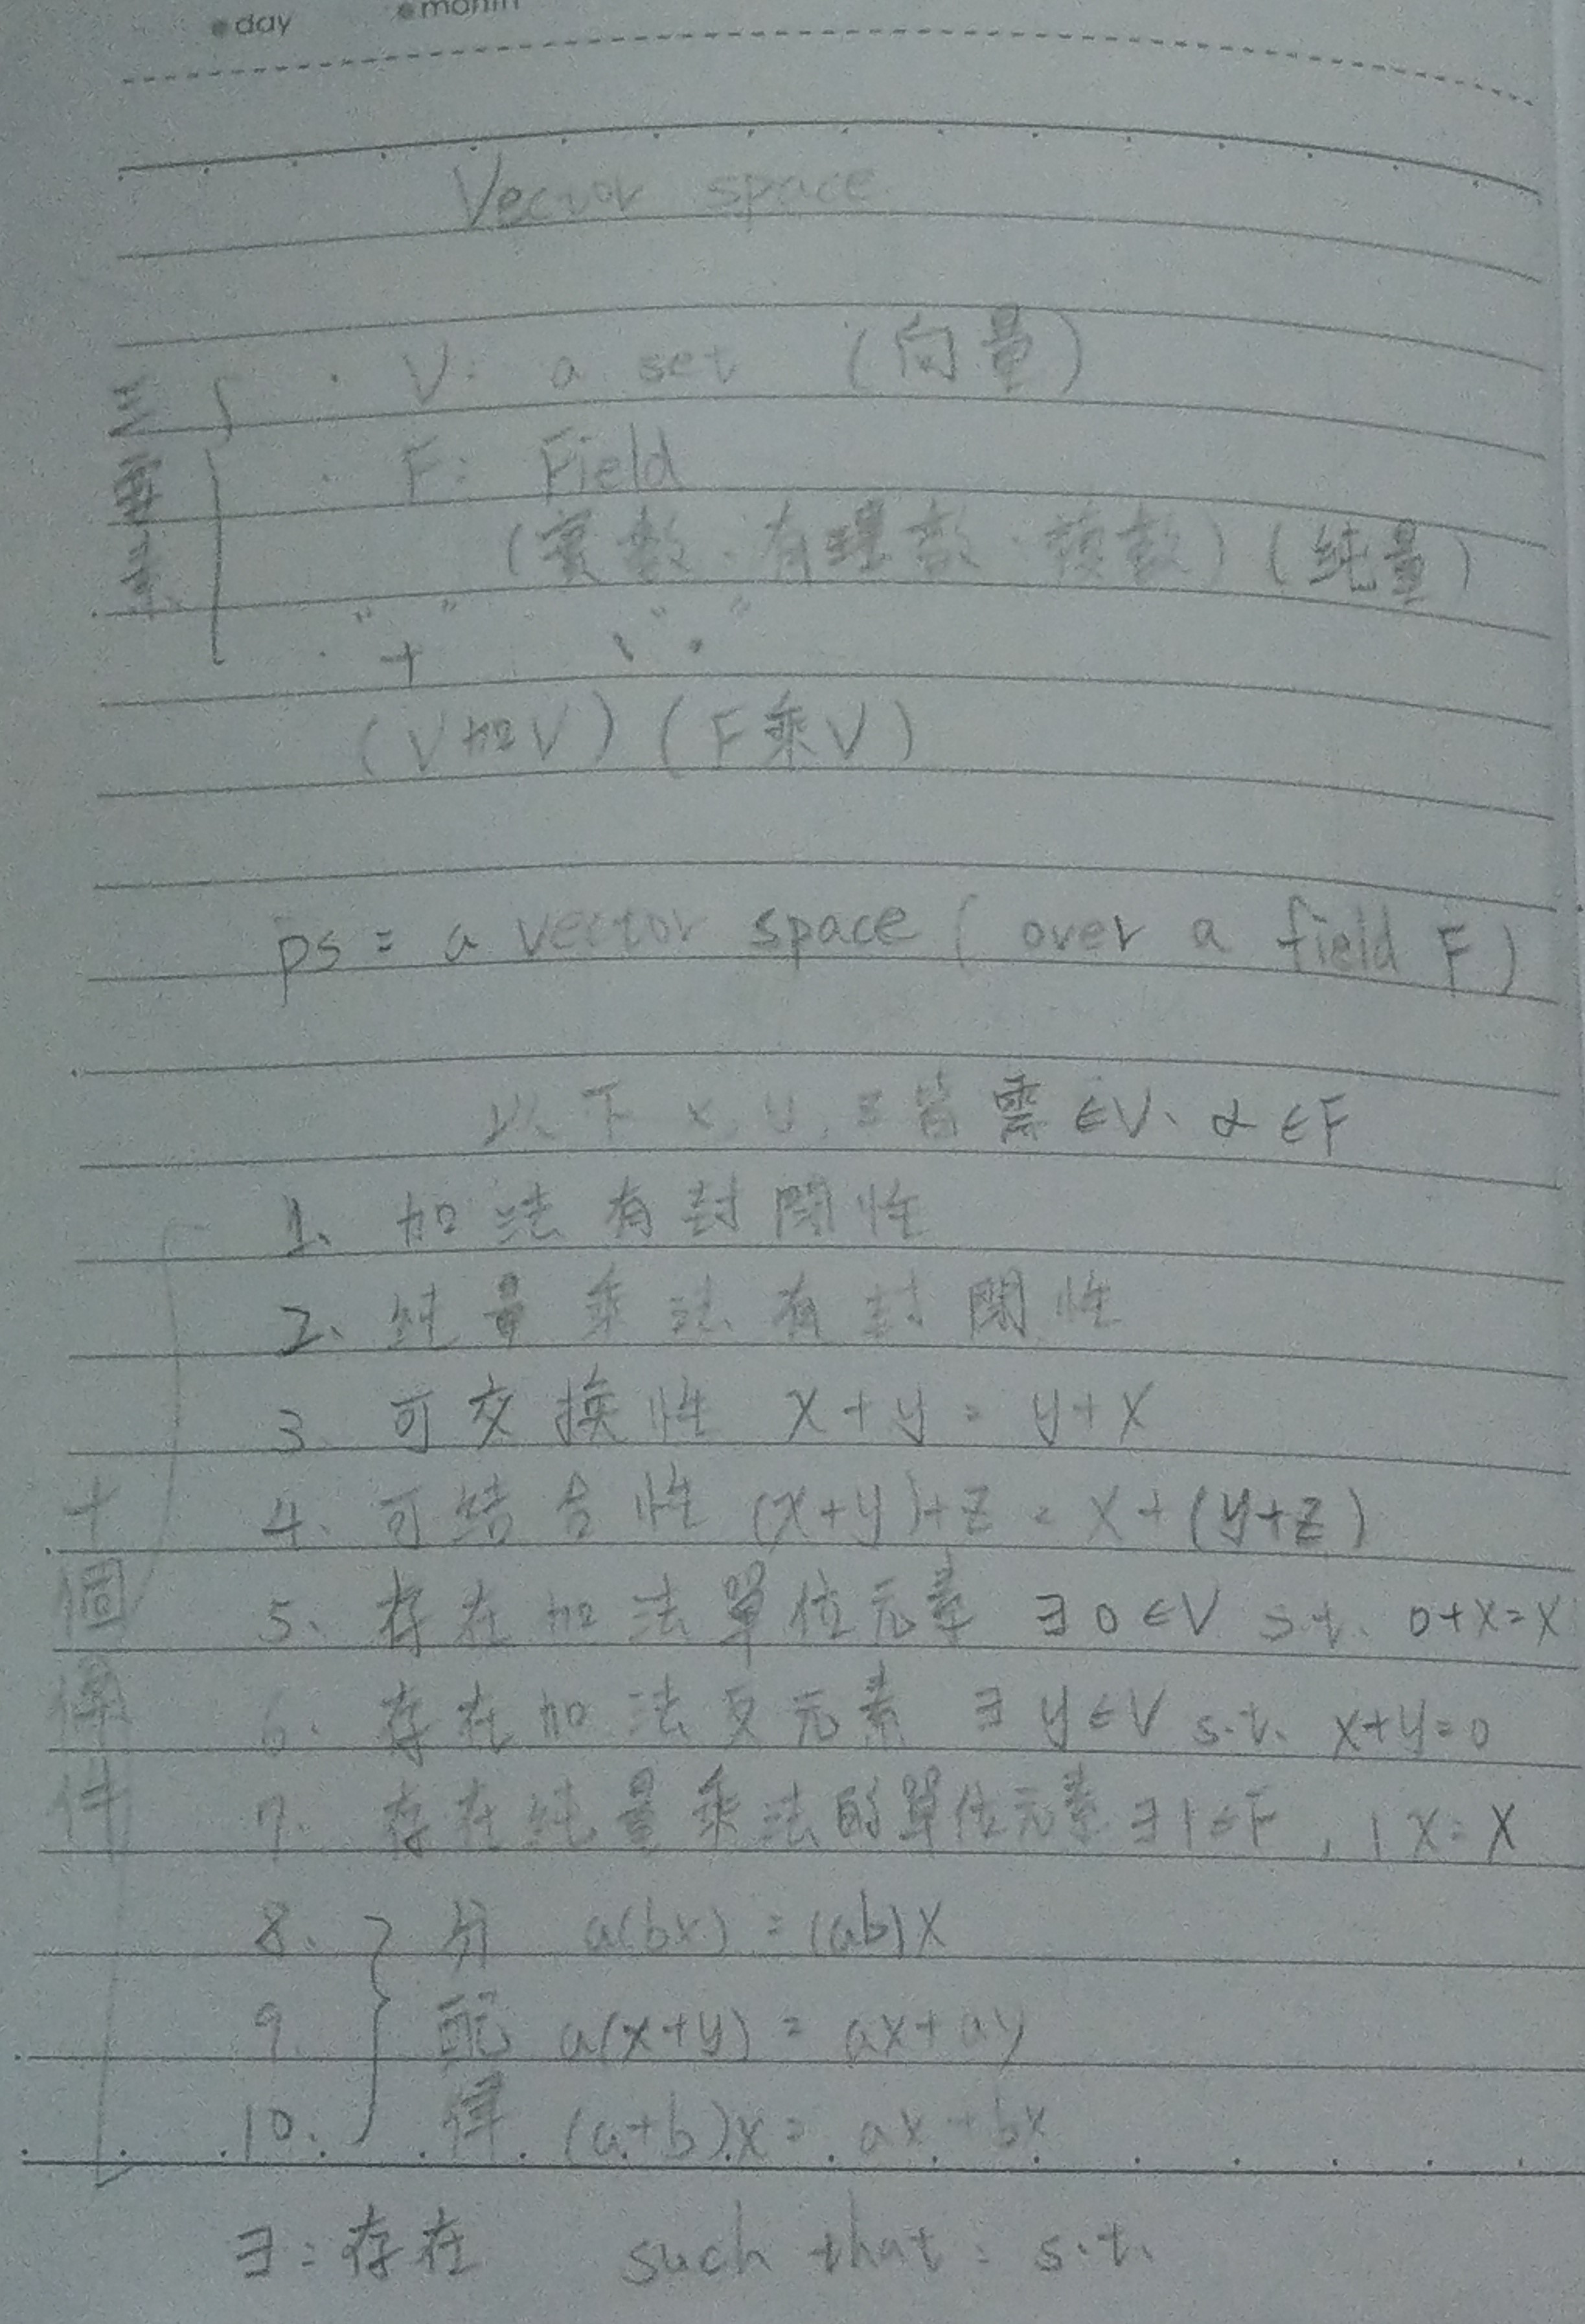 day month
Vector space
三要素
・ V: a set (向量)
・ F: Field
(實數、有理數、複數) (純量)
・ "+" 、 "·"
(V加V) (F乘V)
ps = a vector space ( over a field F )
以下 x, y, z 皆需 ∈V、α ∈F
十個條件
1、加法有封閉性
2、純量乘法有封閉性
3、可交換性 x+y = y+x
4、可結合性 (x+y)+z = x+(y+z)
5、存在加法單位元素 ∃ 0 ∈V s.t. 0+x=x
6、存在加法反元素 ∃ y∈V s.t. x+y=0
7、存在純量乘法的單位元素 ∃ 1∈F , 1x=x
8、分 a(bx) = (ab)x
9、配 a(x+y) = ax+ay
10、律 (a+b)x = ax+bx
∃:存在 such that : s.t.